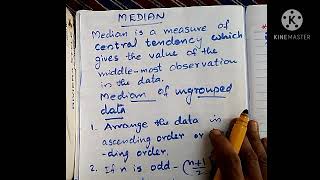 MEDIAN
Median is a measure of
central tendency which
gives the value of the
middle-most observation
in the data.
Median of ungrouped
data
1. Arrange the data in
ascending order or
-ding order.
2. If n is odd - (n+1/2)
KINEMASTER